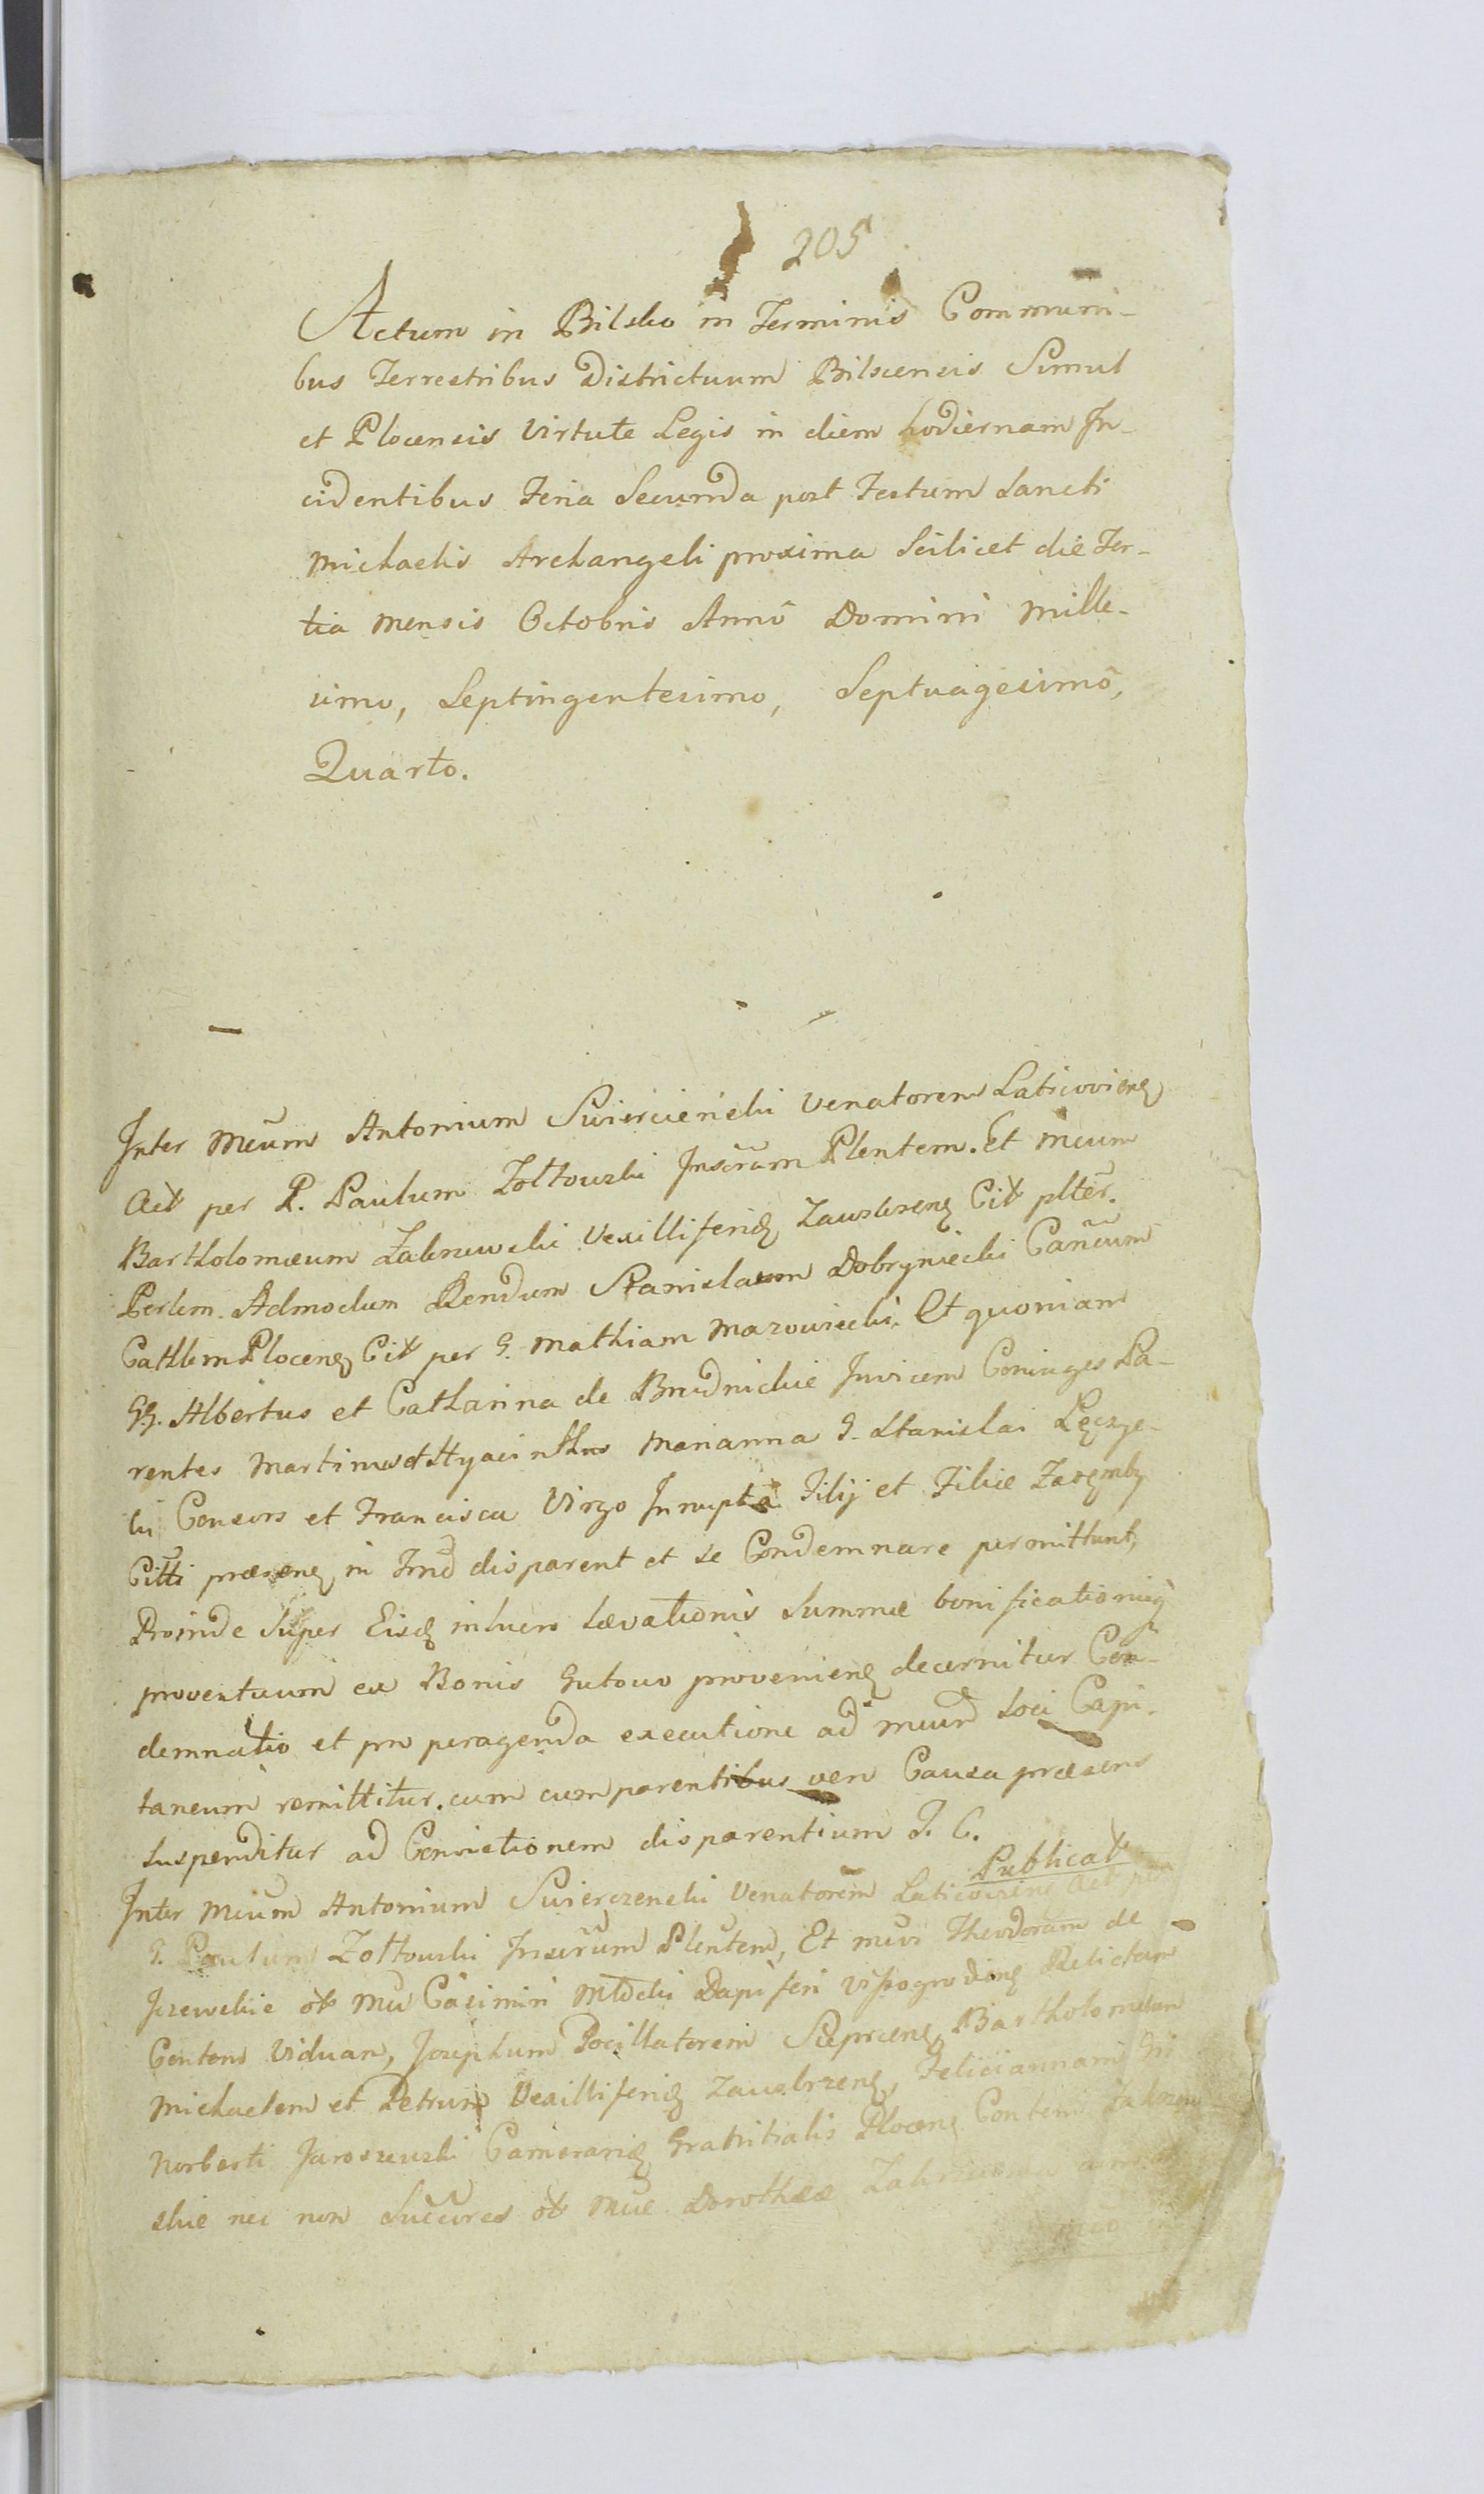 205
Actum in Bilsko in Terminis Communi-
bus Terrestribus Districtuum Bilscensis Simul
et Plocensis Virtute Legis in diem hodiernam In-
cidentibus Feria Secunda post Festum Sancti
Michaelis Archangeli proxima Scilicet die Ter-
tia Mensis Octobris Annô Domini Mille-
simo, Septingentesimo, Septuagesimô,
Quarto.
Inter Mcum Antonium Swiercienski Venatorem Laticovien
Act per P. Paulum Zoltowski Inscrum Plentem. Et Mcum
Bartholomæum Zakrzewski Vexilliferid Zawskrzen Cit plter.
Perlem. Admodum Rendum Stanislaum Dobryniecki Cancum
Cathlem Plocen Cit per G. Mathiam Mazowiecki. Et quoniam
GG. Albertus et Catharina de Brudnickie Invicem Coniuges Pa-
rentes Martinus et Hyacinthus Marianna G. Stanislai Lęczye-
ki Consors et Francisca Virgo Innupta Filij et Filiæ Zaręmby
Citti præsen in Tno disparent et se Condemnare permittunt,
Proinde Super Eisd inlucro Lævationis Summæ bonificationisq
proventuum ex Bonis Gutowo provenien decernitur Con-
demnatio et pro peragenda executione ad Mcum Loci Capi-
taneum remittitur. cum comparentibus vero Causa præsens
Suspenditur ad Convictionem disparentium J. C.
Publicat
Inter Mcum Antonium Swierczenski Venatorem Laticovien Act per
G. Paulum Zoltowski Inscrum Plentem, Et Mcos Theodoram de
Jzewskie ot Mci Casimiri Młocki Dapiferi Wyszogrodien Relictam
Contem Viduam, Josephum Pocillatorem Sieprcen Bartholomæum
Michaelem et Petrum Vexilliferid Zawskrzen, Feliciannam Gsi
Norberti Jaroszewski Camerarid Granitialis Plocen Contem Zakrzew
skie nec non Succures ot Mcæ Dorothææ